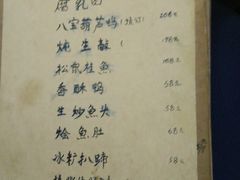 腐乳肉
八宝葫芦鸭(预订) 208元
炖生敲 198元
松鼠桂鱼
香酥鸭 58元
生炒鱼头 68元
烩鱼肚 68元
冰糖扒蹄 58元